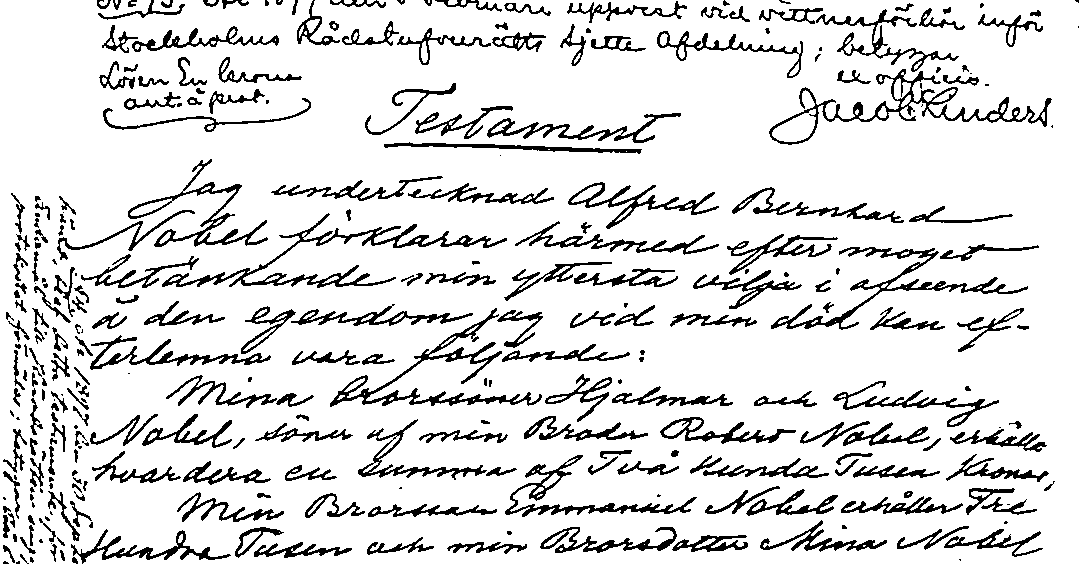 No 73. 1897 den 5 Februari uppvist vid vittnesförhör inför
Stockholms Rådstufvurätts Sjette Afdelning; betygar
Lösen En krona ex officio.
ant. å prot. Jacob Lunders.
Testament
Jag undertecknad Alfred Bernhard
Nobel förklarar härmed efter moget
betänkande min yttersta vilja i afseende
å den egendom jag vid min död kan ef-
terlemna vara följande:
Mina Brorssöner Hjalmar och Ludvig
Nobel, söner af min Broder Robert Nobel, erhålla
hvardera en summa af Två Hundra Tusen Kronor,
Min Brorsson Emmanuel Nobel erhåller Tre
Hundra Tusen och min Brorsdotter Mina Nobel